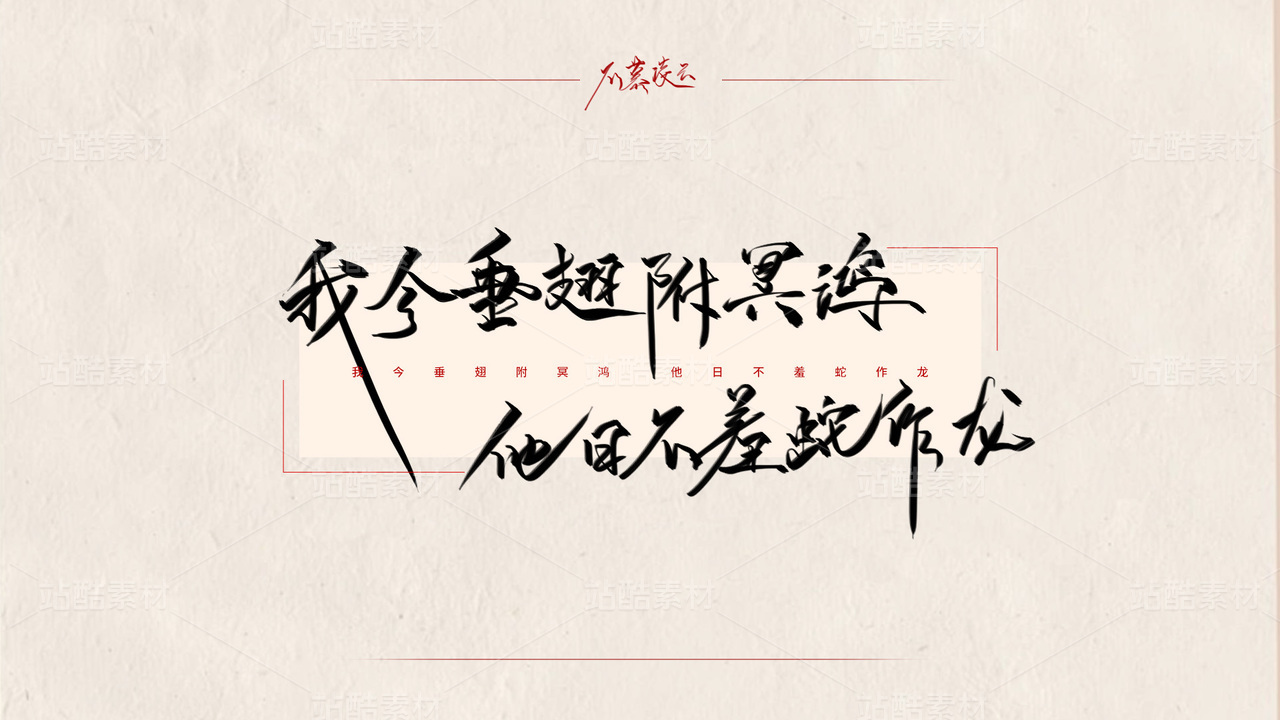 不慕凌云
我今垂翅附冥鸿
我今垂翅附冥鸿 他日不羞蛇作龙
他日不羞蛇作龙
站酷素材